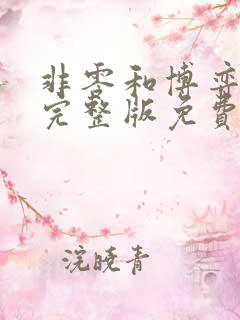 非零和博弈
完整版免費
浣晓青